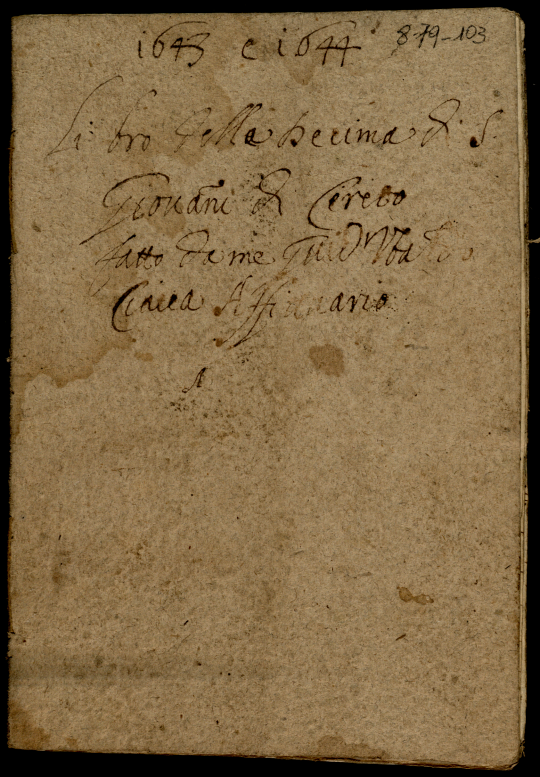 1643 e 1644 879-103
Libro della decima di S.
Giovãni di Cereto
fatto da me Guid'Vbaldo
Ciacca Affittuario